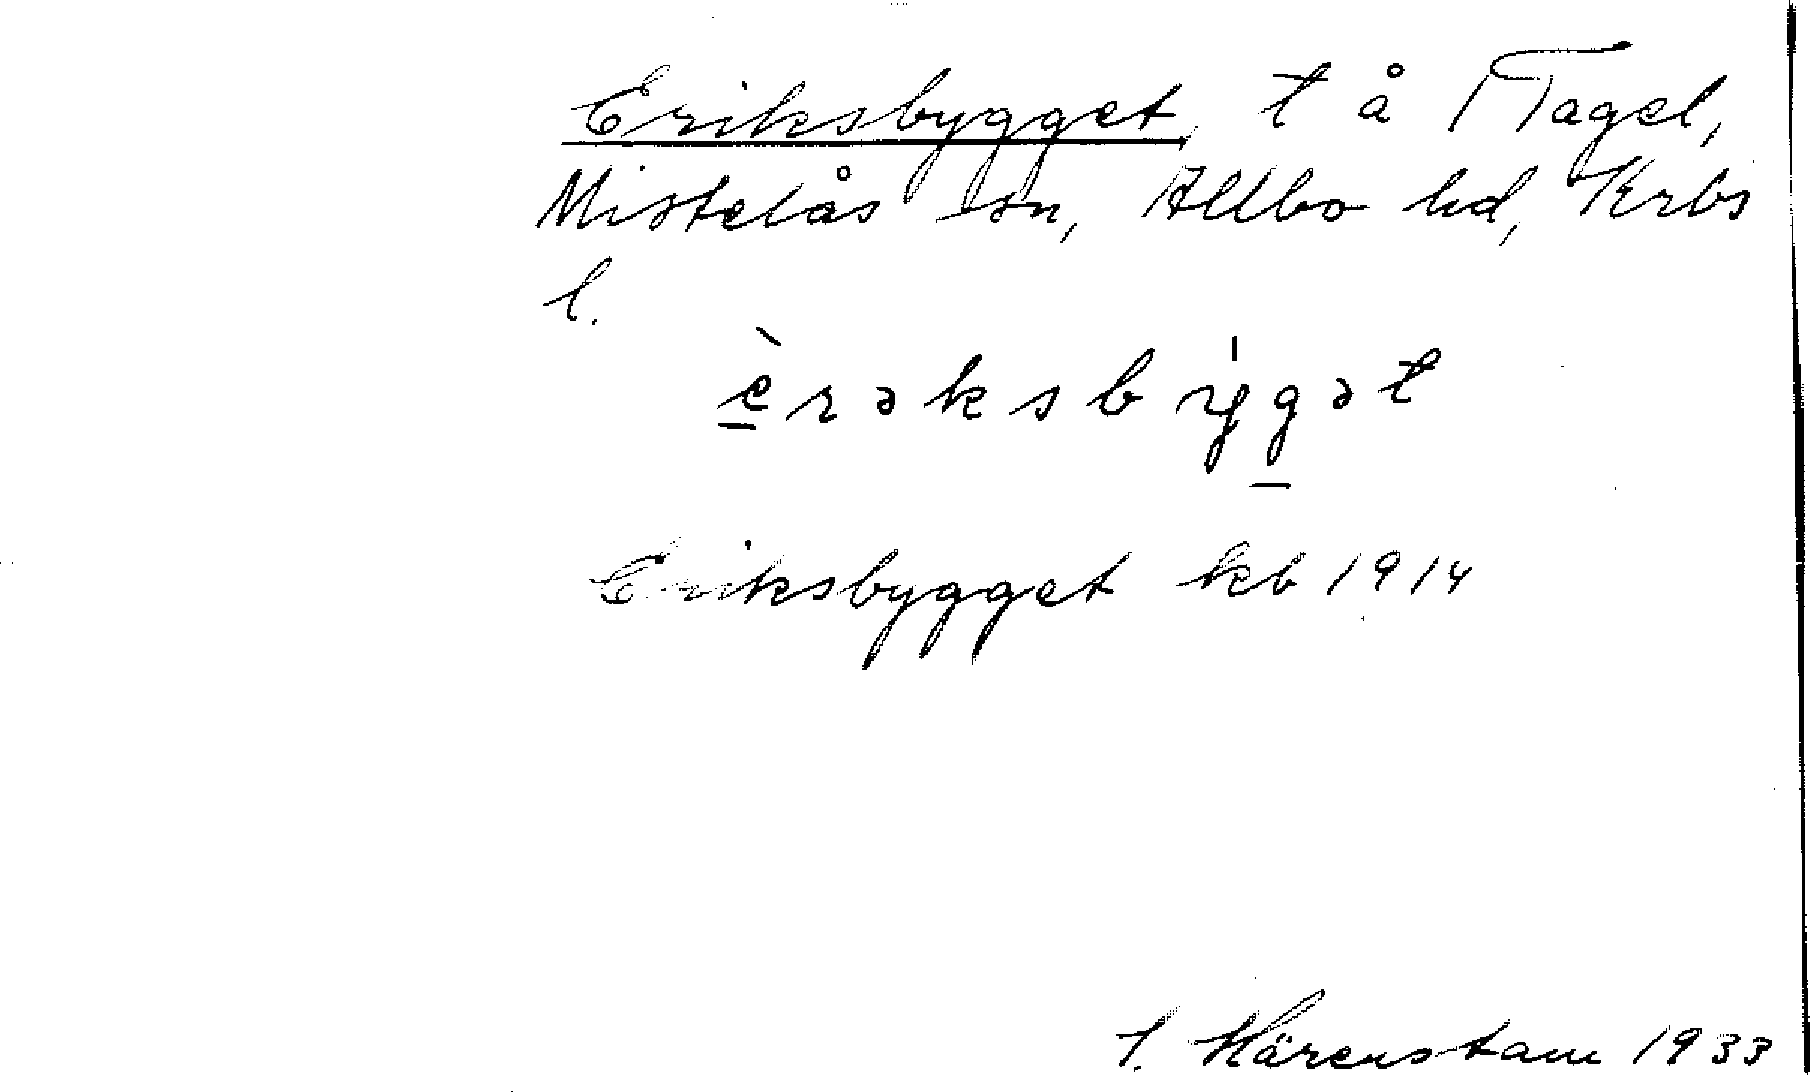 Eriksbygget, t å Tagel,
Mistelås sn, Allbo hd, Krbs
l.
è̱rəksby̍g̱ət
Eriksbygget kb 1914
Härenstam 1933